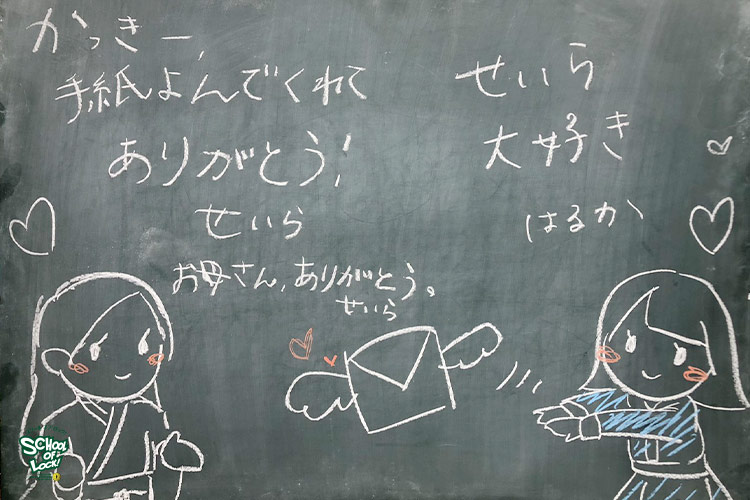 かっきー、
手紙よんでくれて
ありがとう!
せいら
お母さん、ありがとう。
せいら
せいら
大好き
はるか
SCHOOL
OF
LOCK!